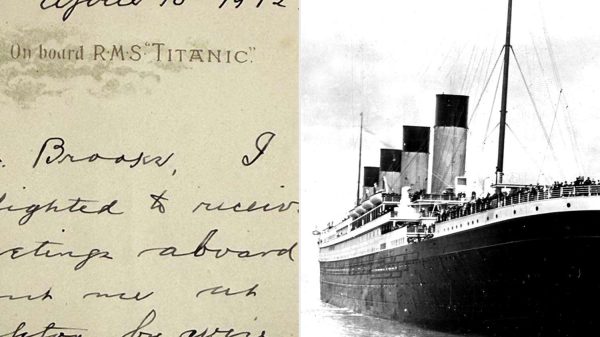 April 10 1912.
On board R·M·S. "TITANIC".
. Brooks, I
lighted to receiv
etings aboard
nt me at
by